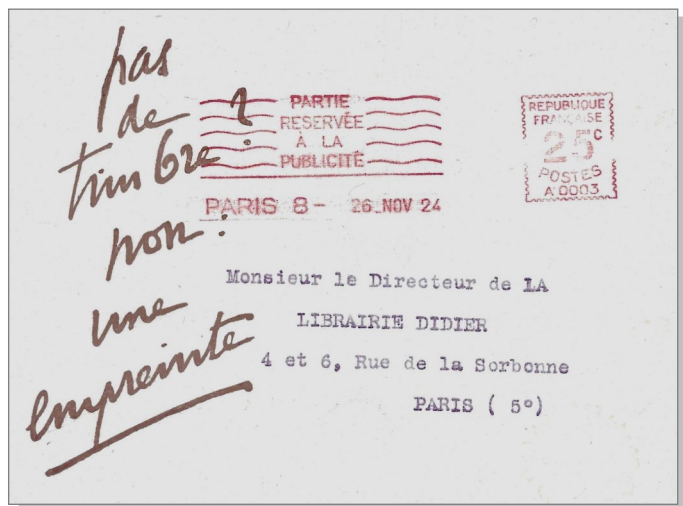 pas
de
timbre ?
non :
une
empreinte
PARTIE
RESERVÉE
À LA
PUBLICITÉ
PARIS 8 - 26 NOV 24
REPUBLIQUE
FRANÇAISE
25c
POSTES
A 0003
Monsieur le Directeur de LA
LIBRAIRIE DIDIER
4 et 6, Rue de la Sorbonne
PARIS ( 5º)